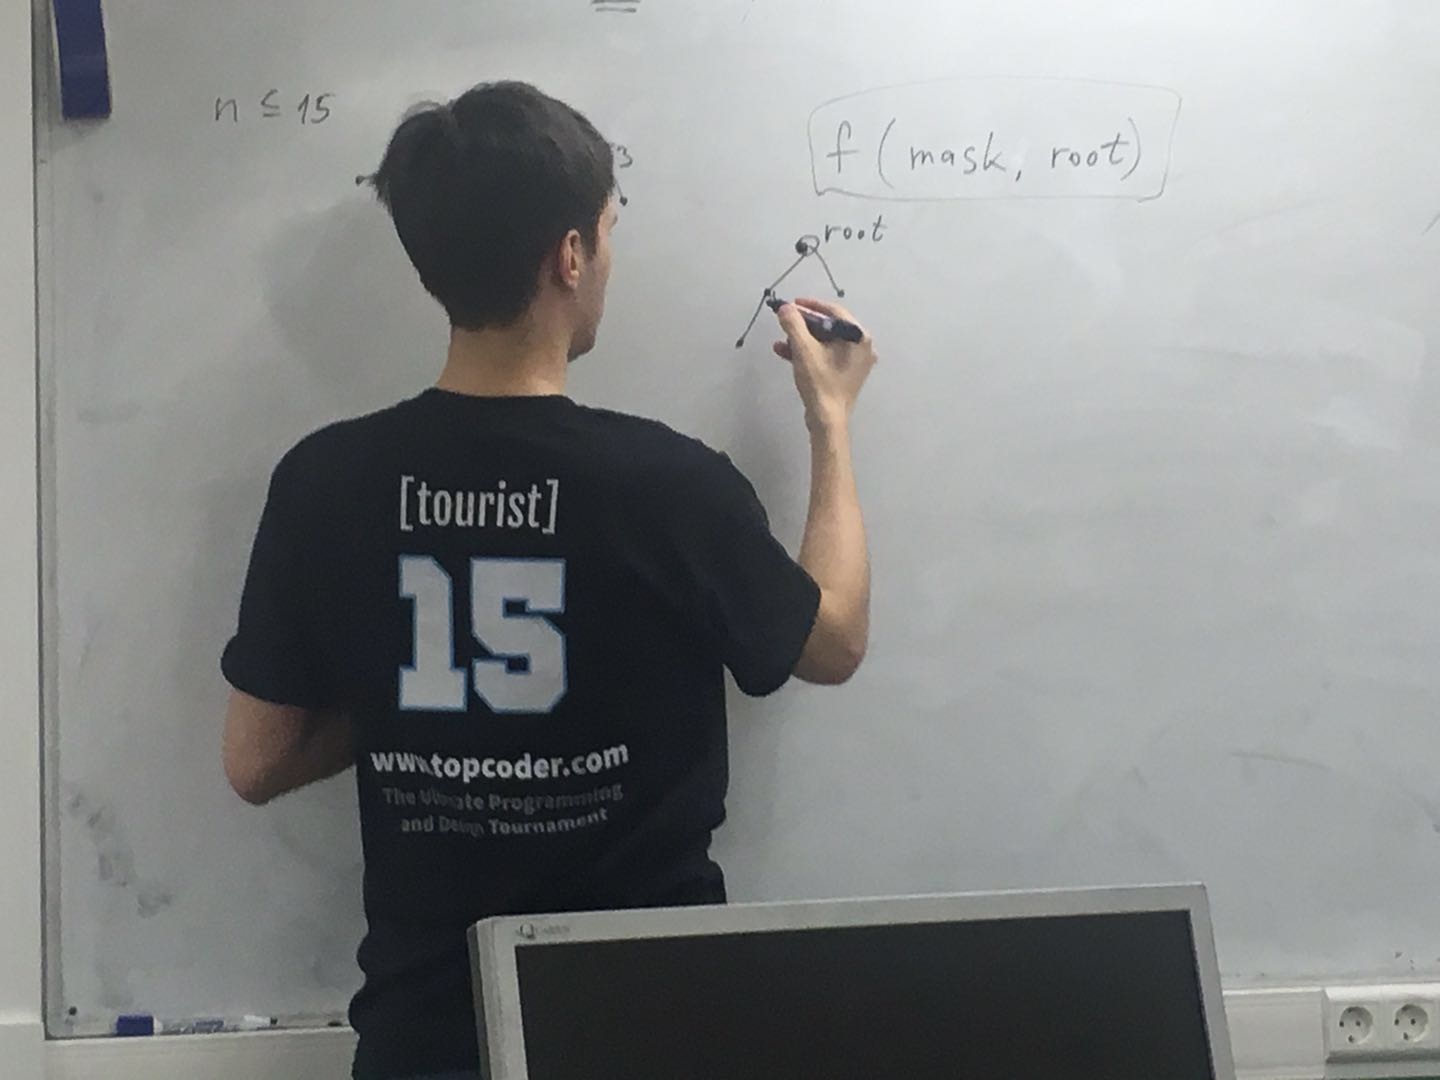 n ≤ 15
3
f (mask, root)
root
[tourist]
15
www.topcoder.com
The Ultimate Programming
and Design Tournament